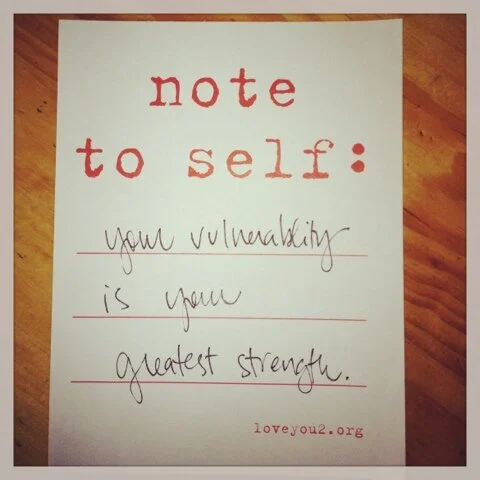 note
to self:
your vulnerability
is your
greatest strength.
loveyou2.org